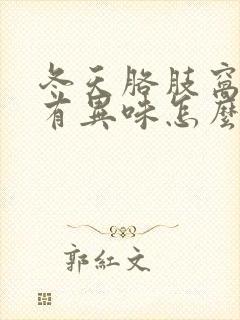 冬天胳肢窩
有異味怎麼
郭紅文